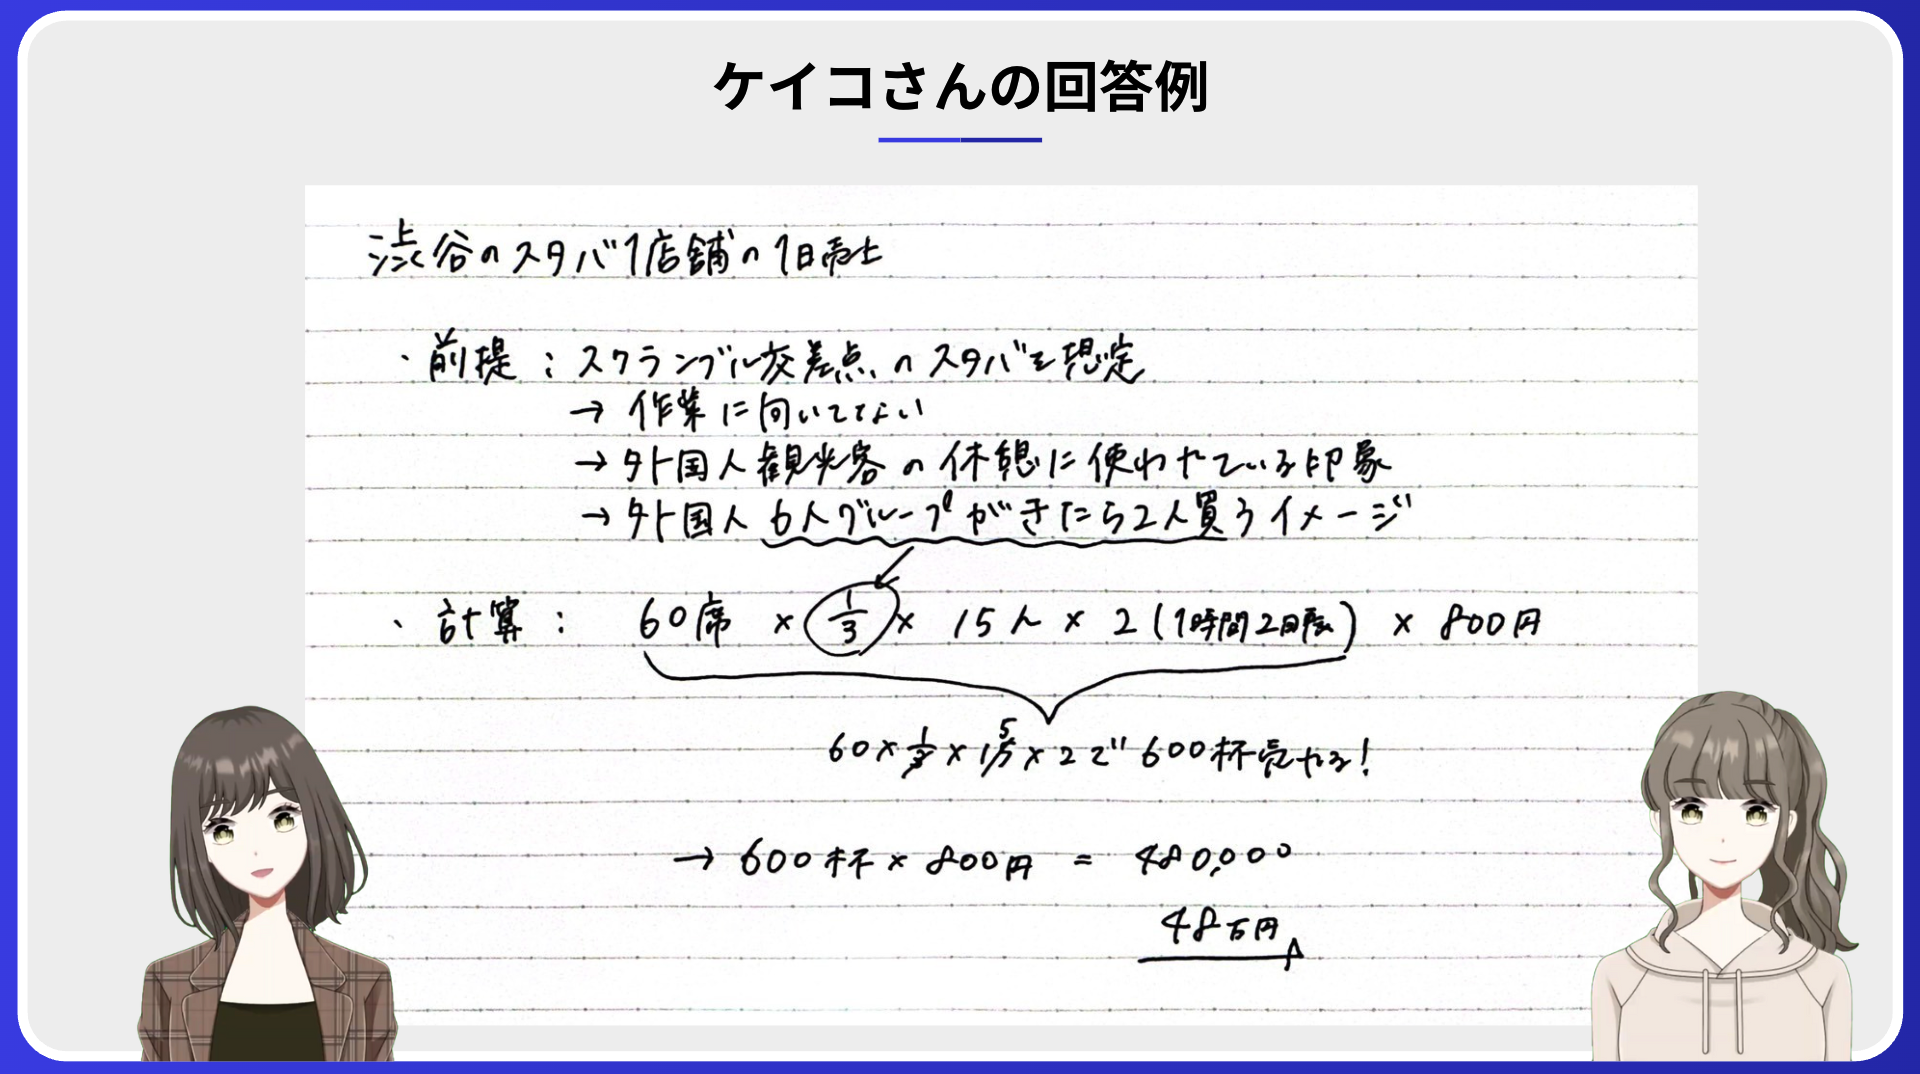 ケイコさんの回答例
渋谷のスタバ1店舗の1日売上
・前提：スクランブル交差点のスタバを想定
→ 作業に向いてない
→ 外国人観光客の休憩に使われている印象
→ 外国人6人グループがきたら2人買うイメージ
・計算： 60席 × 1/3 × 15h × 2（1時間2回転） × 800円
60 × 1/3 × 15 5 × 2で 600杯売れる！
→ 600杯 × 800円 = 480,000
48万円